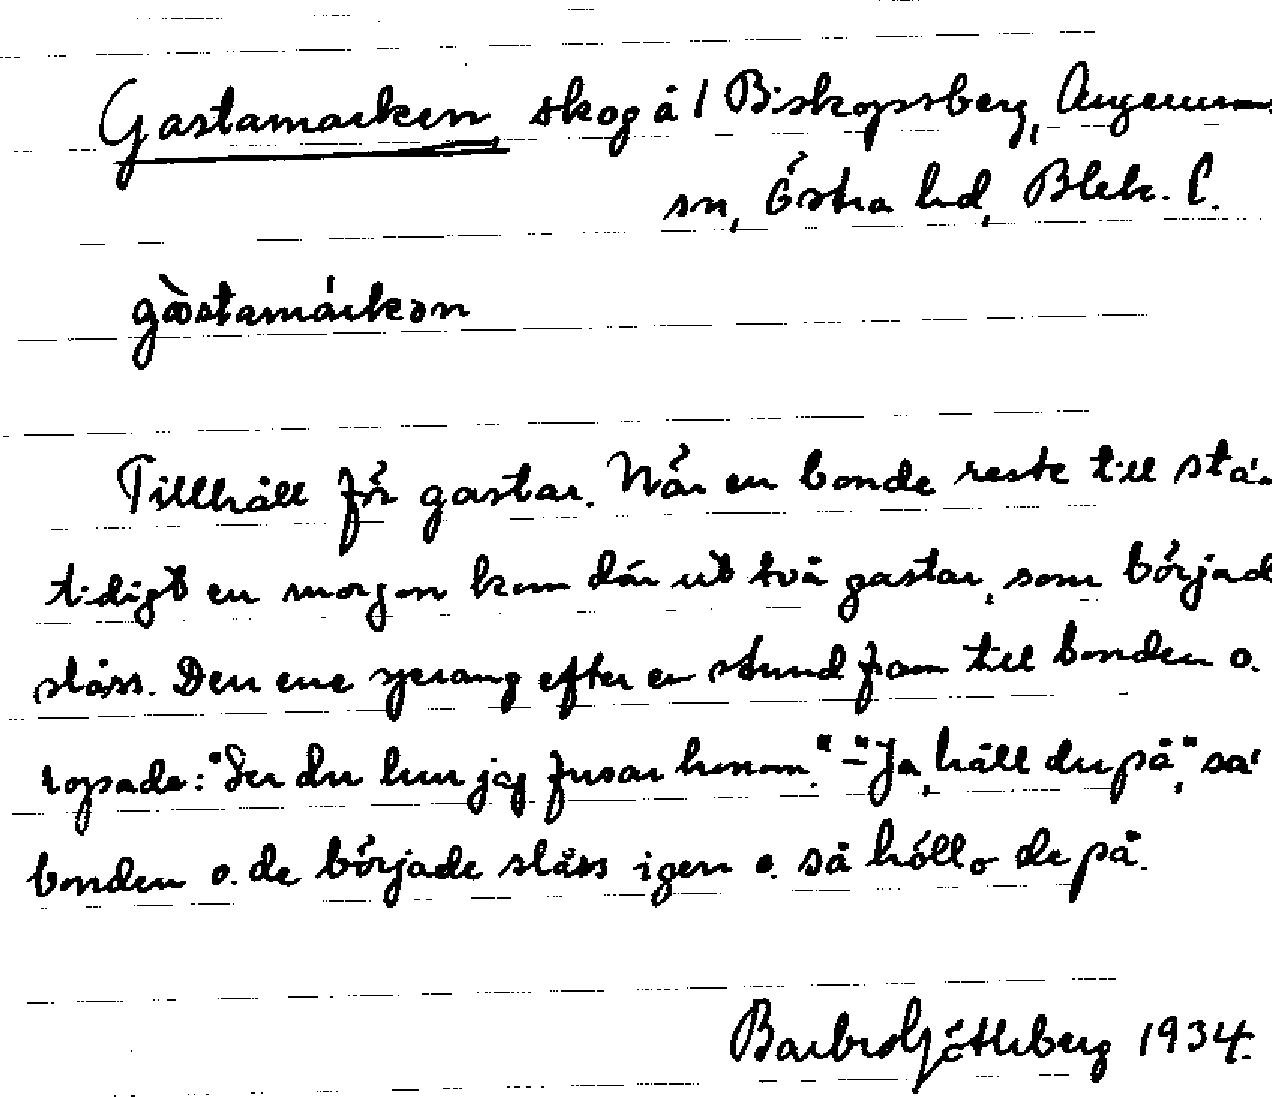 Gastamarken, skog å 1 Biskopsberg, Augerums
sn, Östra hd, Blek. l.
gàstamárkən
Tillhåll för gastar. När en bonde reste till sta'n
tidigt en morgon kom där ut två gastar, som började
slåss. Den ene sprang efter en stund fram till bonden o.
ropade: "Ser du hur jag fusar honom." - "Ja, håll du på", sa'
bonden o. de började slåss igen o. så höllo de på.
Barbro Götlberg 1934.